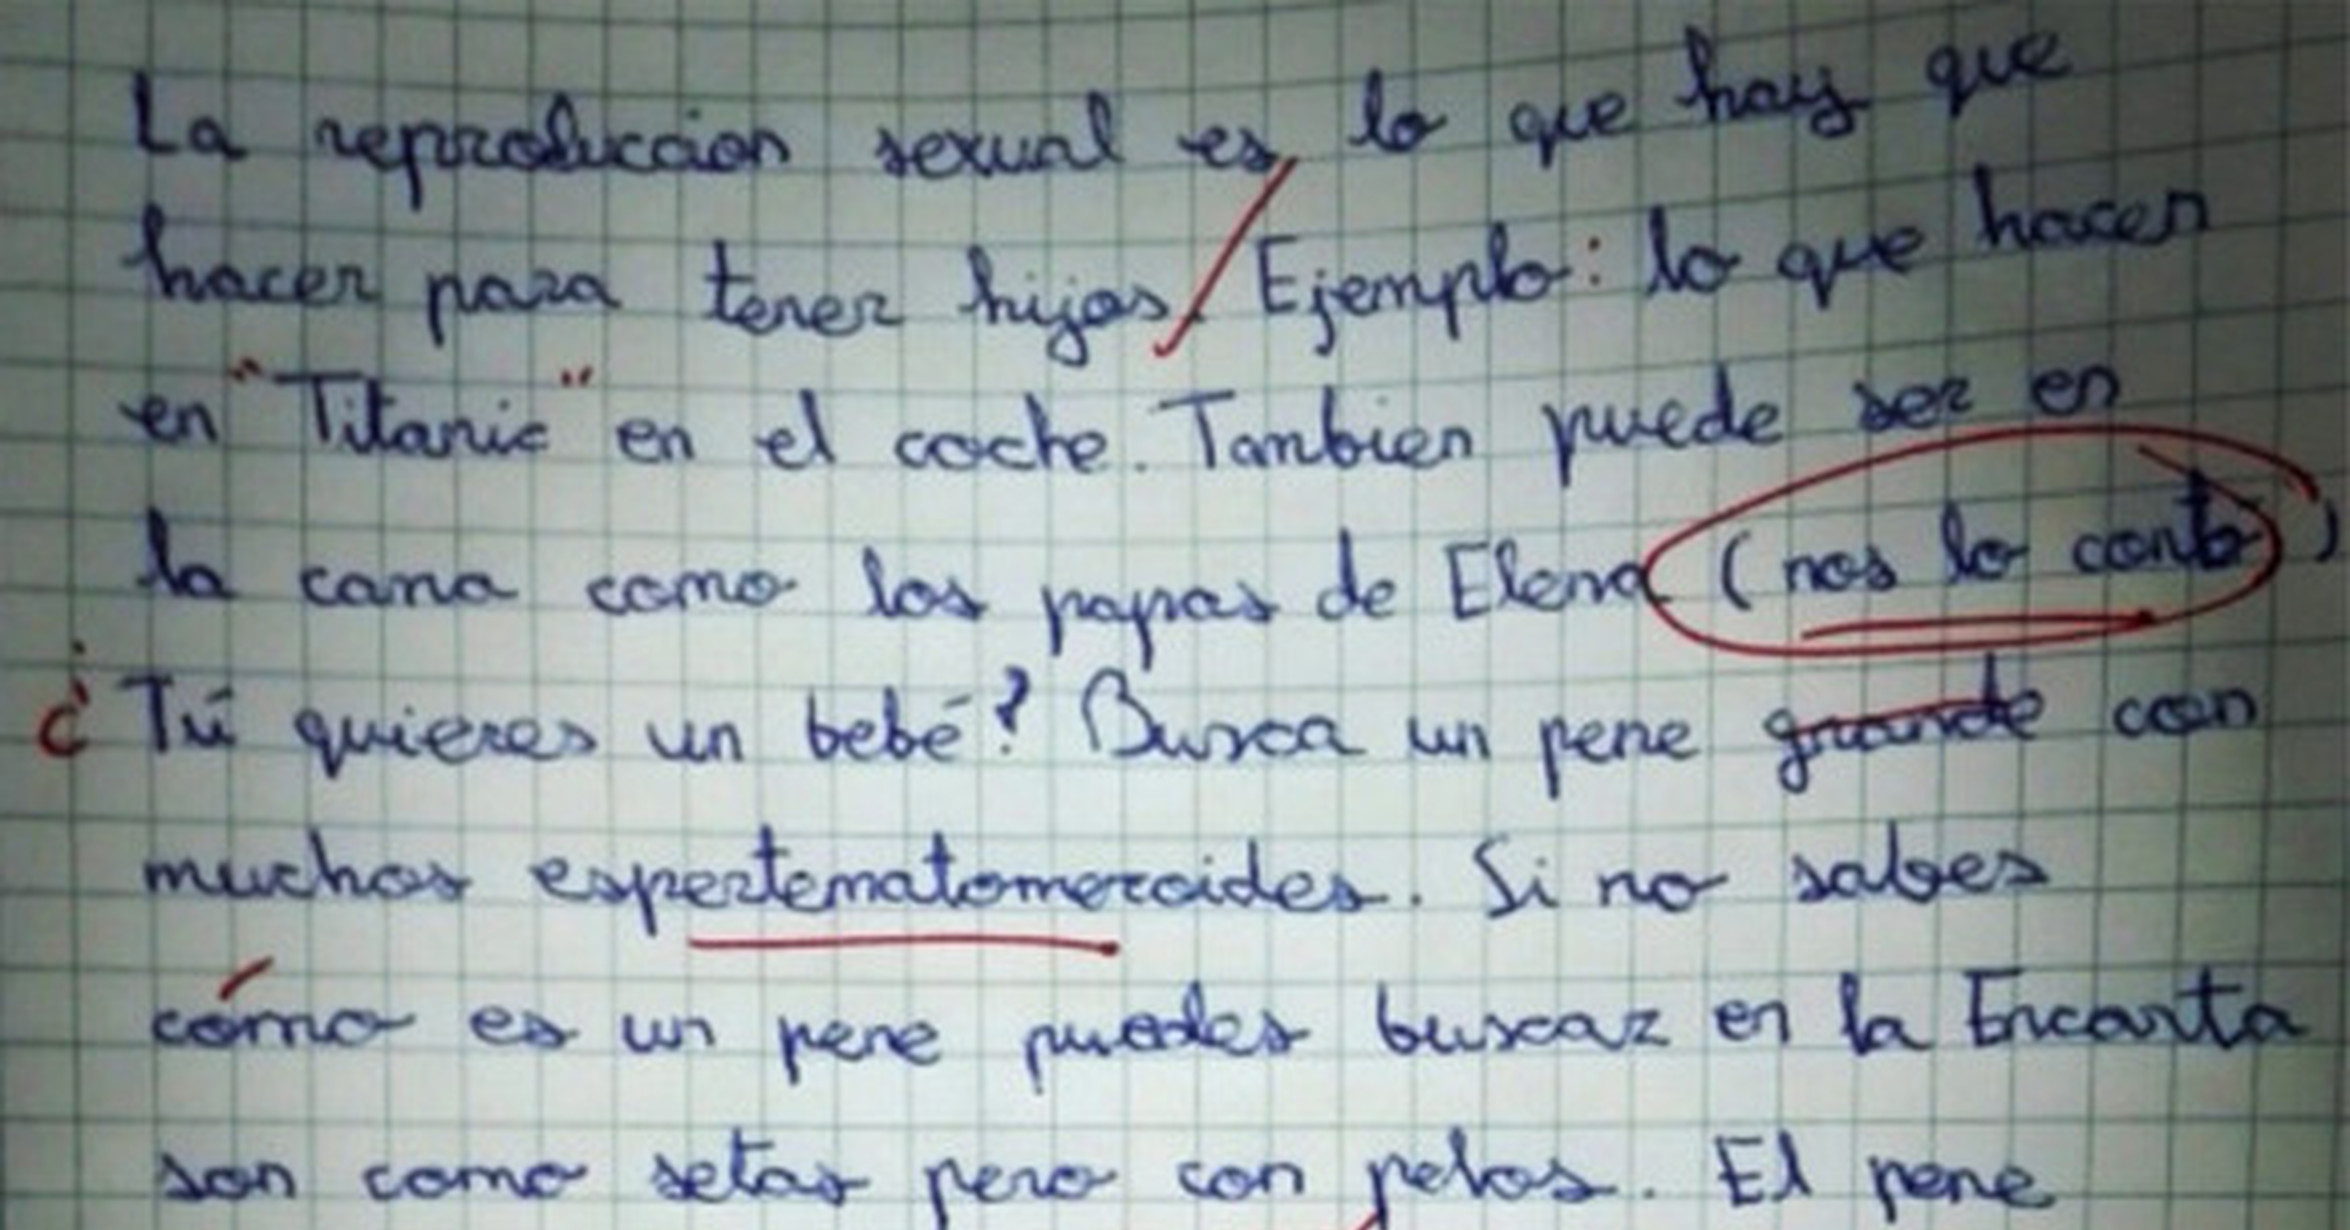 La reproduccion sexual es lo que hay que
hacer para tener hijos. Ejemplo: lo que hacen
en "Titanic" en el coche. Tambien puede ser en
la cama como los papas de Elena (nos lo contó)
¿Tú quieres un bebé? Busca un pene grande con
muchos espertematomeroides. Si no sabes
cómo es un pene puedes buscar en la Encarta
son como setas pero con pelos. El pene